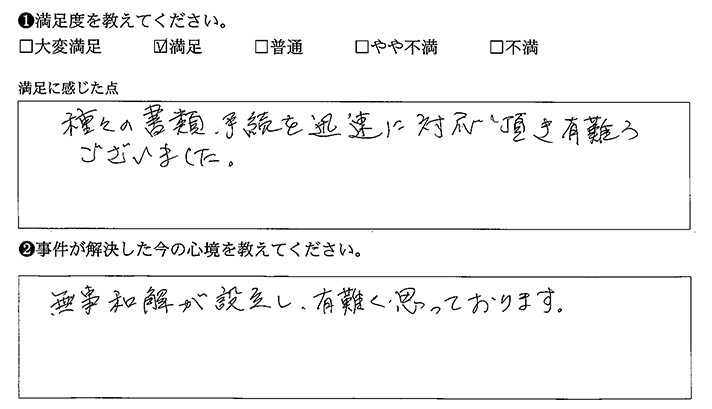 ❶満足度を教えてください。
□大変満足 ☑満足 □普通 □やや不満 □不満
満足に感じた点
種々の書類、手続を迅速に対応頂き有難う
ございました。
❷事件が解決した今の心境を教えてください。
無事和解が設立し、有難く思っております。